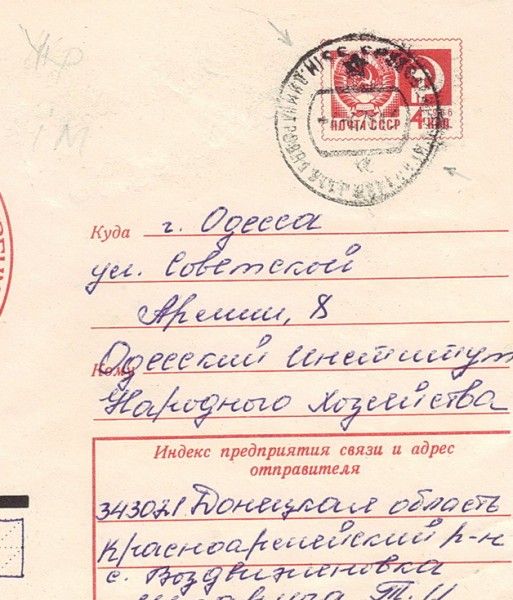 Укр
ІМ
1966
ПОЧТА СССР
4 КОП.
Куда г. Одесса
ул. Советской
Армии, 8
Кому Одесский Институт
Народного Хозяйства
Индекс предприятия связи и адрес
отправителя
343071 Донецкая область
Красноармейский р-н
с. Воздвиженовка
Т. И